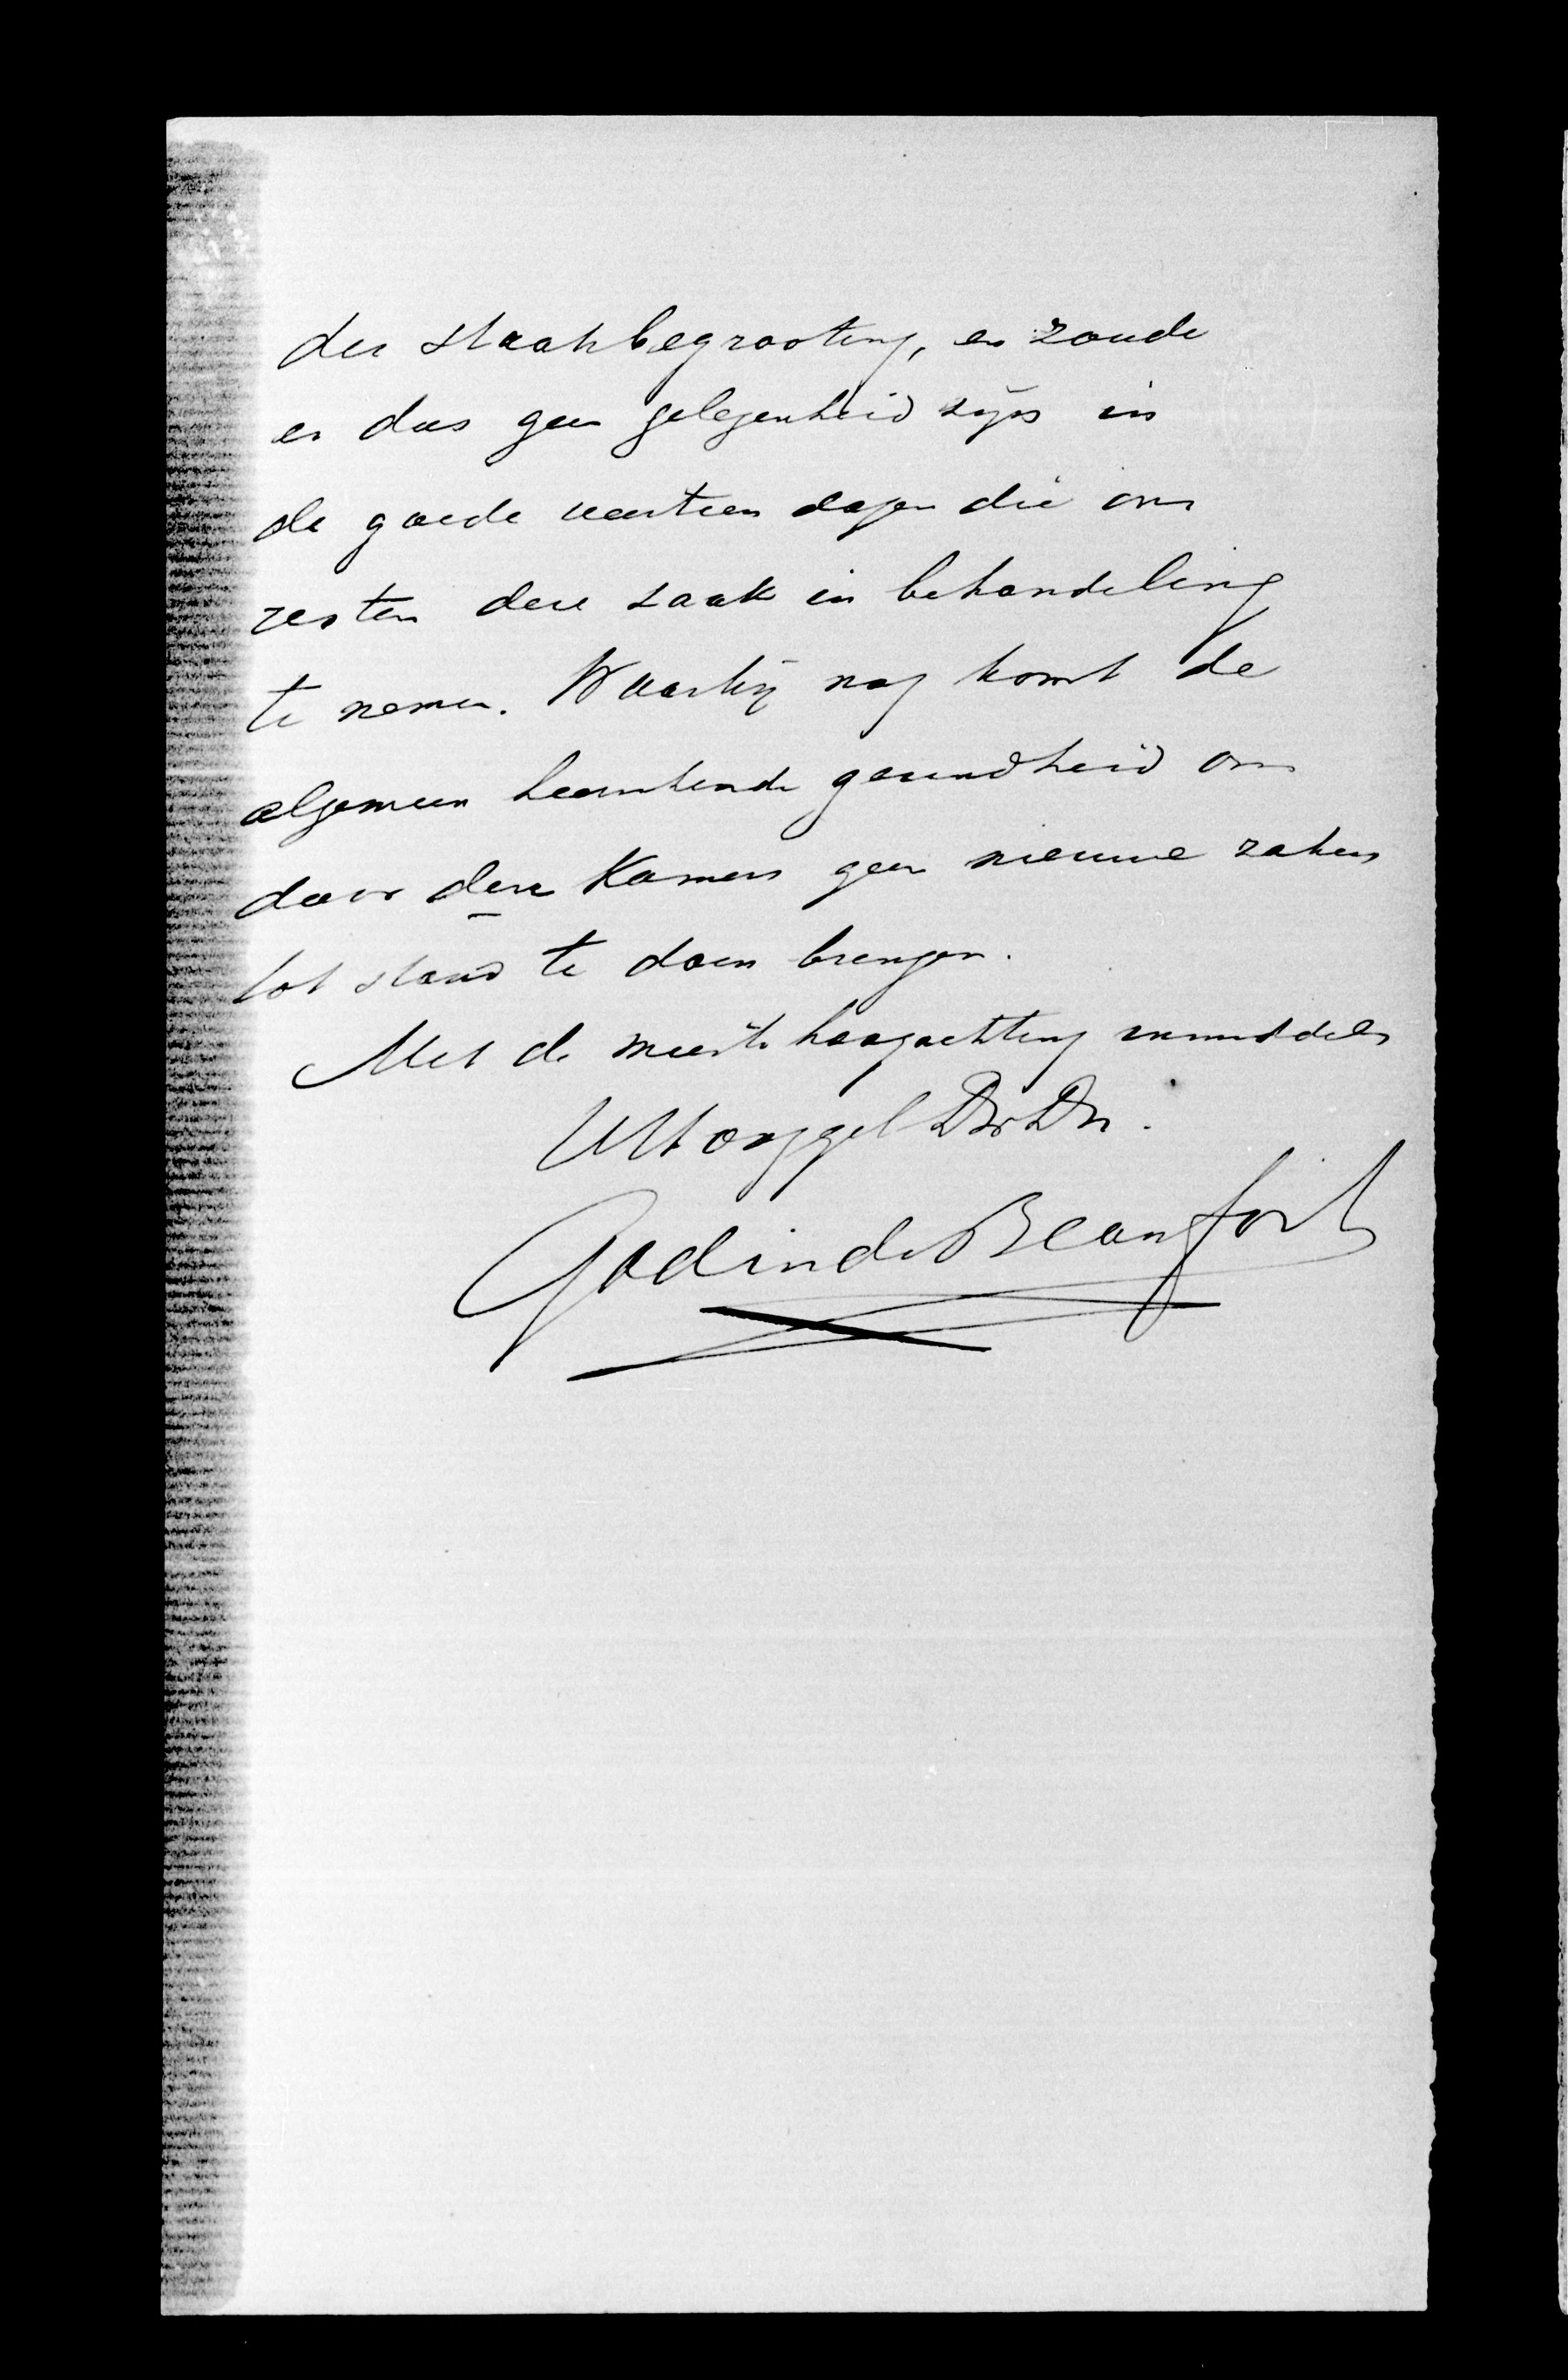 der staatsbegrooting, en zoude
er dus geen gelegenheid zijn in
de goede veertien dagen die ons
resten deze zaak in behandeling
te nemen. Waarbij nog komt de
algemeen heerschende gezindheid om
door deze Kamers geen nieuwe zaken
tot stand te doen brengen.
Met de meeste hoogachting inmiddels
UHoogGel DwDr.
Godin de Beaufort